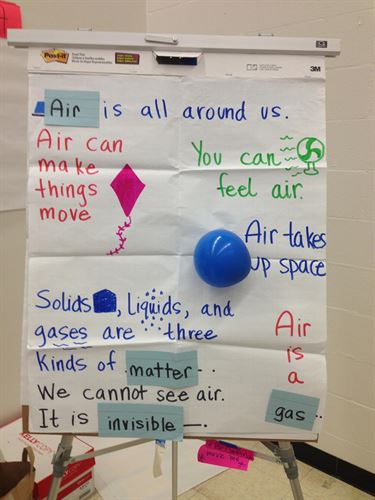 Post-it
3M
Air is all around us.
Air can
make
things
move
You can
feel air.
Air takes
up space
Solids, liquids, and
gases are three
kinds of matter.
We cannot see air.
It is invisible.
Air
is
a
gas.